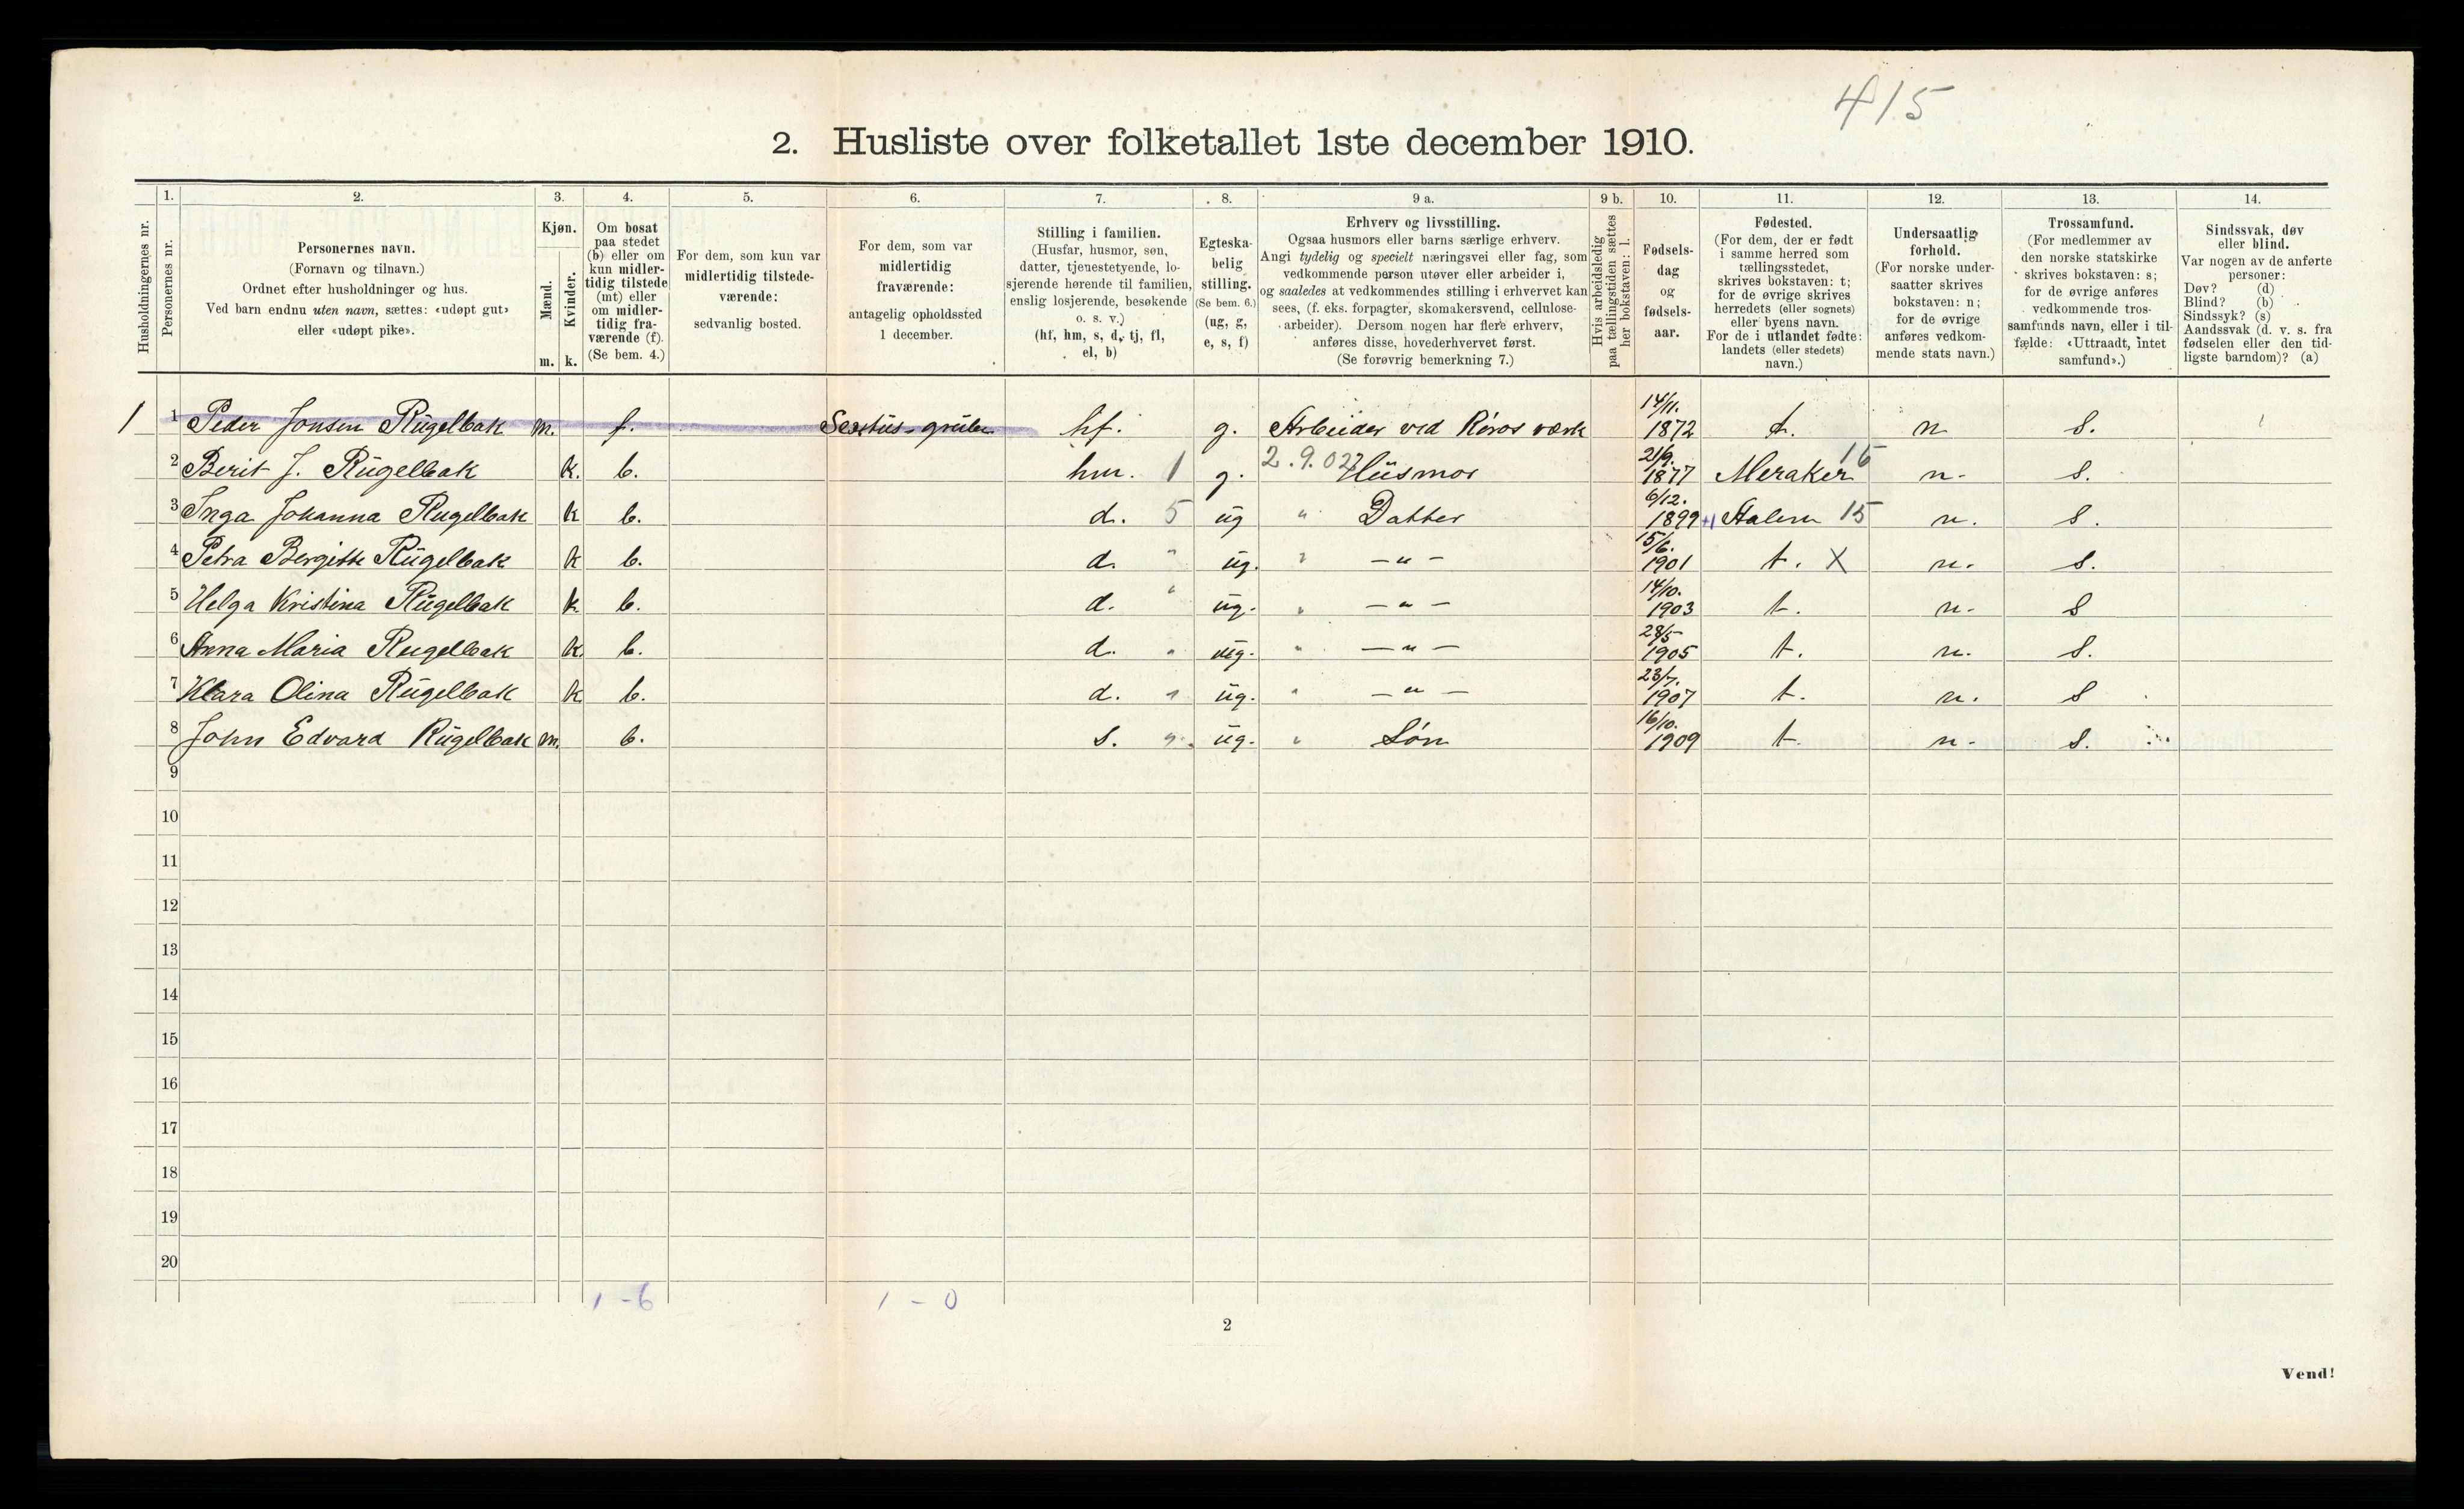 415
2. Husliste over folketallet 1ste december 1910.
Husholdningernes nr.
1.
Personernes nr.
2.
Personernes navn.
(Fornavn og tilnavn.)
Ordnet efter husholdninger og hus.
Ved barn endnu uten navn, sættes: «udøpt gut»
eller «udøpt pike».
3.
Kjøn.
Mænd.
Kvinder.
m. k.
4.
Om bosat
paa stedet
(b) eller om
kun midler-
tidig tilstede
(mt) eller
om midler-
tidig fra-
værende (f).
(Se bem. 4.)
5.
For dem, som kun var
midlertidig tilstede-
værende:
sedvanlig bosted.
6.
For dem, som var
midlertidig
fraværende:
antagelig opholdssted
1 december.
7.
Stilling i familien.
(Husfar, husmor, søn,
datter, tjenestetyende, lo-
sjerende hørende til familien,
enslig losjerende, besøkende
o. s. v.)
(hf, hm, s, d, tj, fl,
el, b)
8.
Egteska-
belig
stilling.
(Se bem. 6.)
(ug, g,
e, s, f)
9 a.
Erhverv og livsstilling.
Ogsaa husmors eller barns særlige erhverv.
Angi tydelig og specielt næringsvei eller fag, som
vedkommende person utøver eller arbeider i,
og saaledes at vedkommendes stilling i erhvervet kan
sees, (f. eks. forpagter, skomakersvend, cellulose-
arbeider). Dersom nogen har flere erhverv,
anføres disse, hovederhvervet først.
(Se forøvrig bemerkning 7.)
9 b.
Hvis arbeidsledig
paa tællingstiden sættes
her bokstaven: l.
10.
Fødsels-
dag
og
fødsels-
aar.
11.
Fødested.
(For dem, der er født
i samme herred som
tællingsstedet,
skrives bokstaven: t;
for de øvrige skrives
herredets (eller sognets)
eller byens navn.
For de i utlandet fødte:
landets (eller stedets)
navn.)
12.
Undersaatlig
forhold.
(For norske under-
saatter skrives
bokstaven: n;
for de øvrige
anføres vedkom-
mende stats navn.)
13.
Trossamfund.
(For medlemmer av
den norske statskirke
skrives bokstaven: s;
for de øvrige anføres
vedkommende tros-
samfunds navn, eller i til-
fælde: «Uttraadt, intet
samfund».)
14.
Sindssvak, døv
eller blind.
Var nogen av de anførte
personer:
Døv? (d)
Blind? (b)
Sindssyk? (s)
Aandssvak (d. v. s. fra
fødselen eller den tid-
ligste barndom)? (a)
1 1 Peder Jonsen Rügelbak m. f. Sextüs-grüben hf. g. Arbeider ved Röros værk 14/11. 1872 t. n s.
2 Berit J. Rügelbak k. b. hm. 1 g. 2.9.02 Hüsmor 21/9. 1877 Meraker 16 n. s.
3 Inga Johanna Rugelbak k b. d. 5 üg " Datter 6/12. 1899 +1 Aalen 15 n. s.
4 Petra Bergitte Rügelbak k b. d. " üg. " — " — 15/6. 1901 t. X n. s.
5 Helga Kristina Rügelbak k. b. d. " üg. " — " — 14/10. 1903 t. n. s
6 Anna Maria Rugelbak k. b. d. " üg. " — " — 28/5 1905 t. n. s.
7 Klara Olina Rügelbak k. b. d. " üg. " — " — 23/7. 1907 t. n. s
8 John Edvard Rügelbak m. b. s. " üg. " Søn 16/10. 1909 t. n. s.
9
10
11
12
13
14
15
16
17
18
19
20
1 - 6 1 - 0
2
Vend!